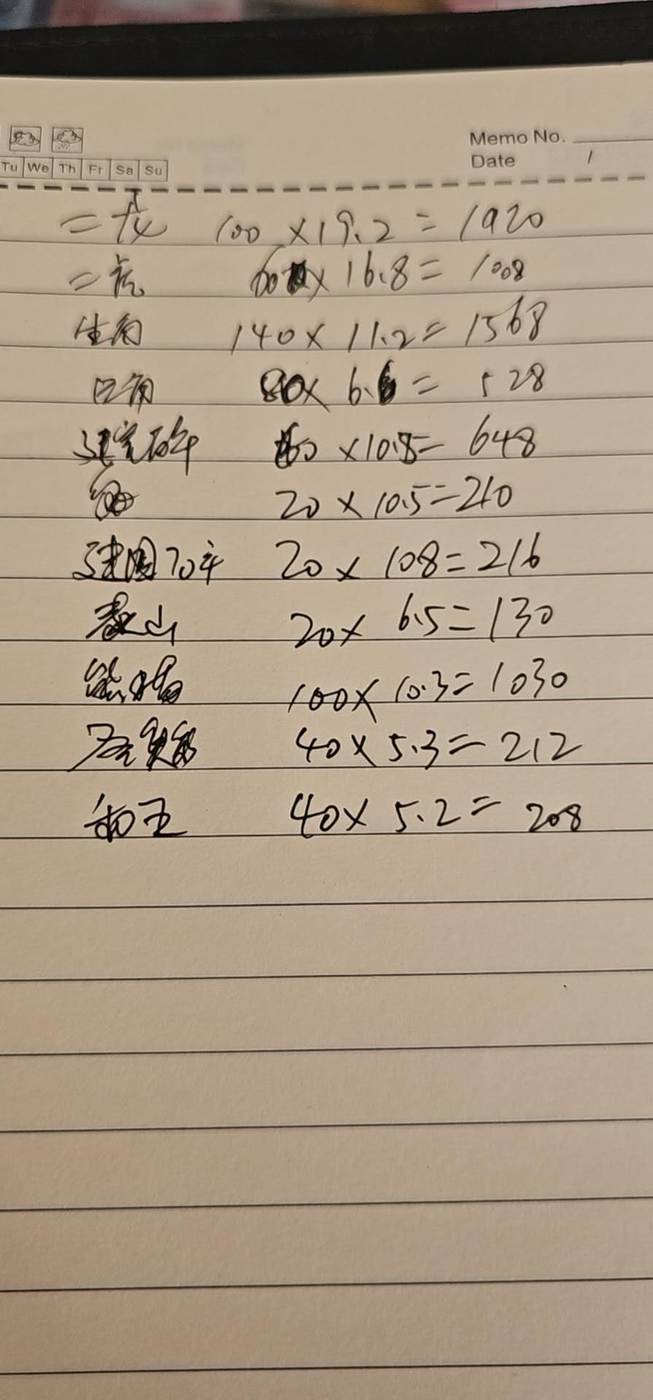 Memo No.
Tu We Th Fr Sa Su
Date /
二龙 100×19.2=1920
二虎 60×16.8=1008
生肖 140×11.2=1568
80×6.6=528
60×10.8=648
20×10.5=210
建国70年 20×108=216
泰山 20×6.5=130
熊猫 100×10.3=1030
40×5.3=212
和五 40×5.2=208